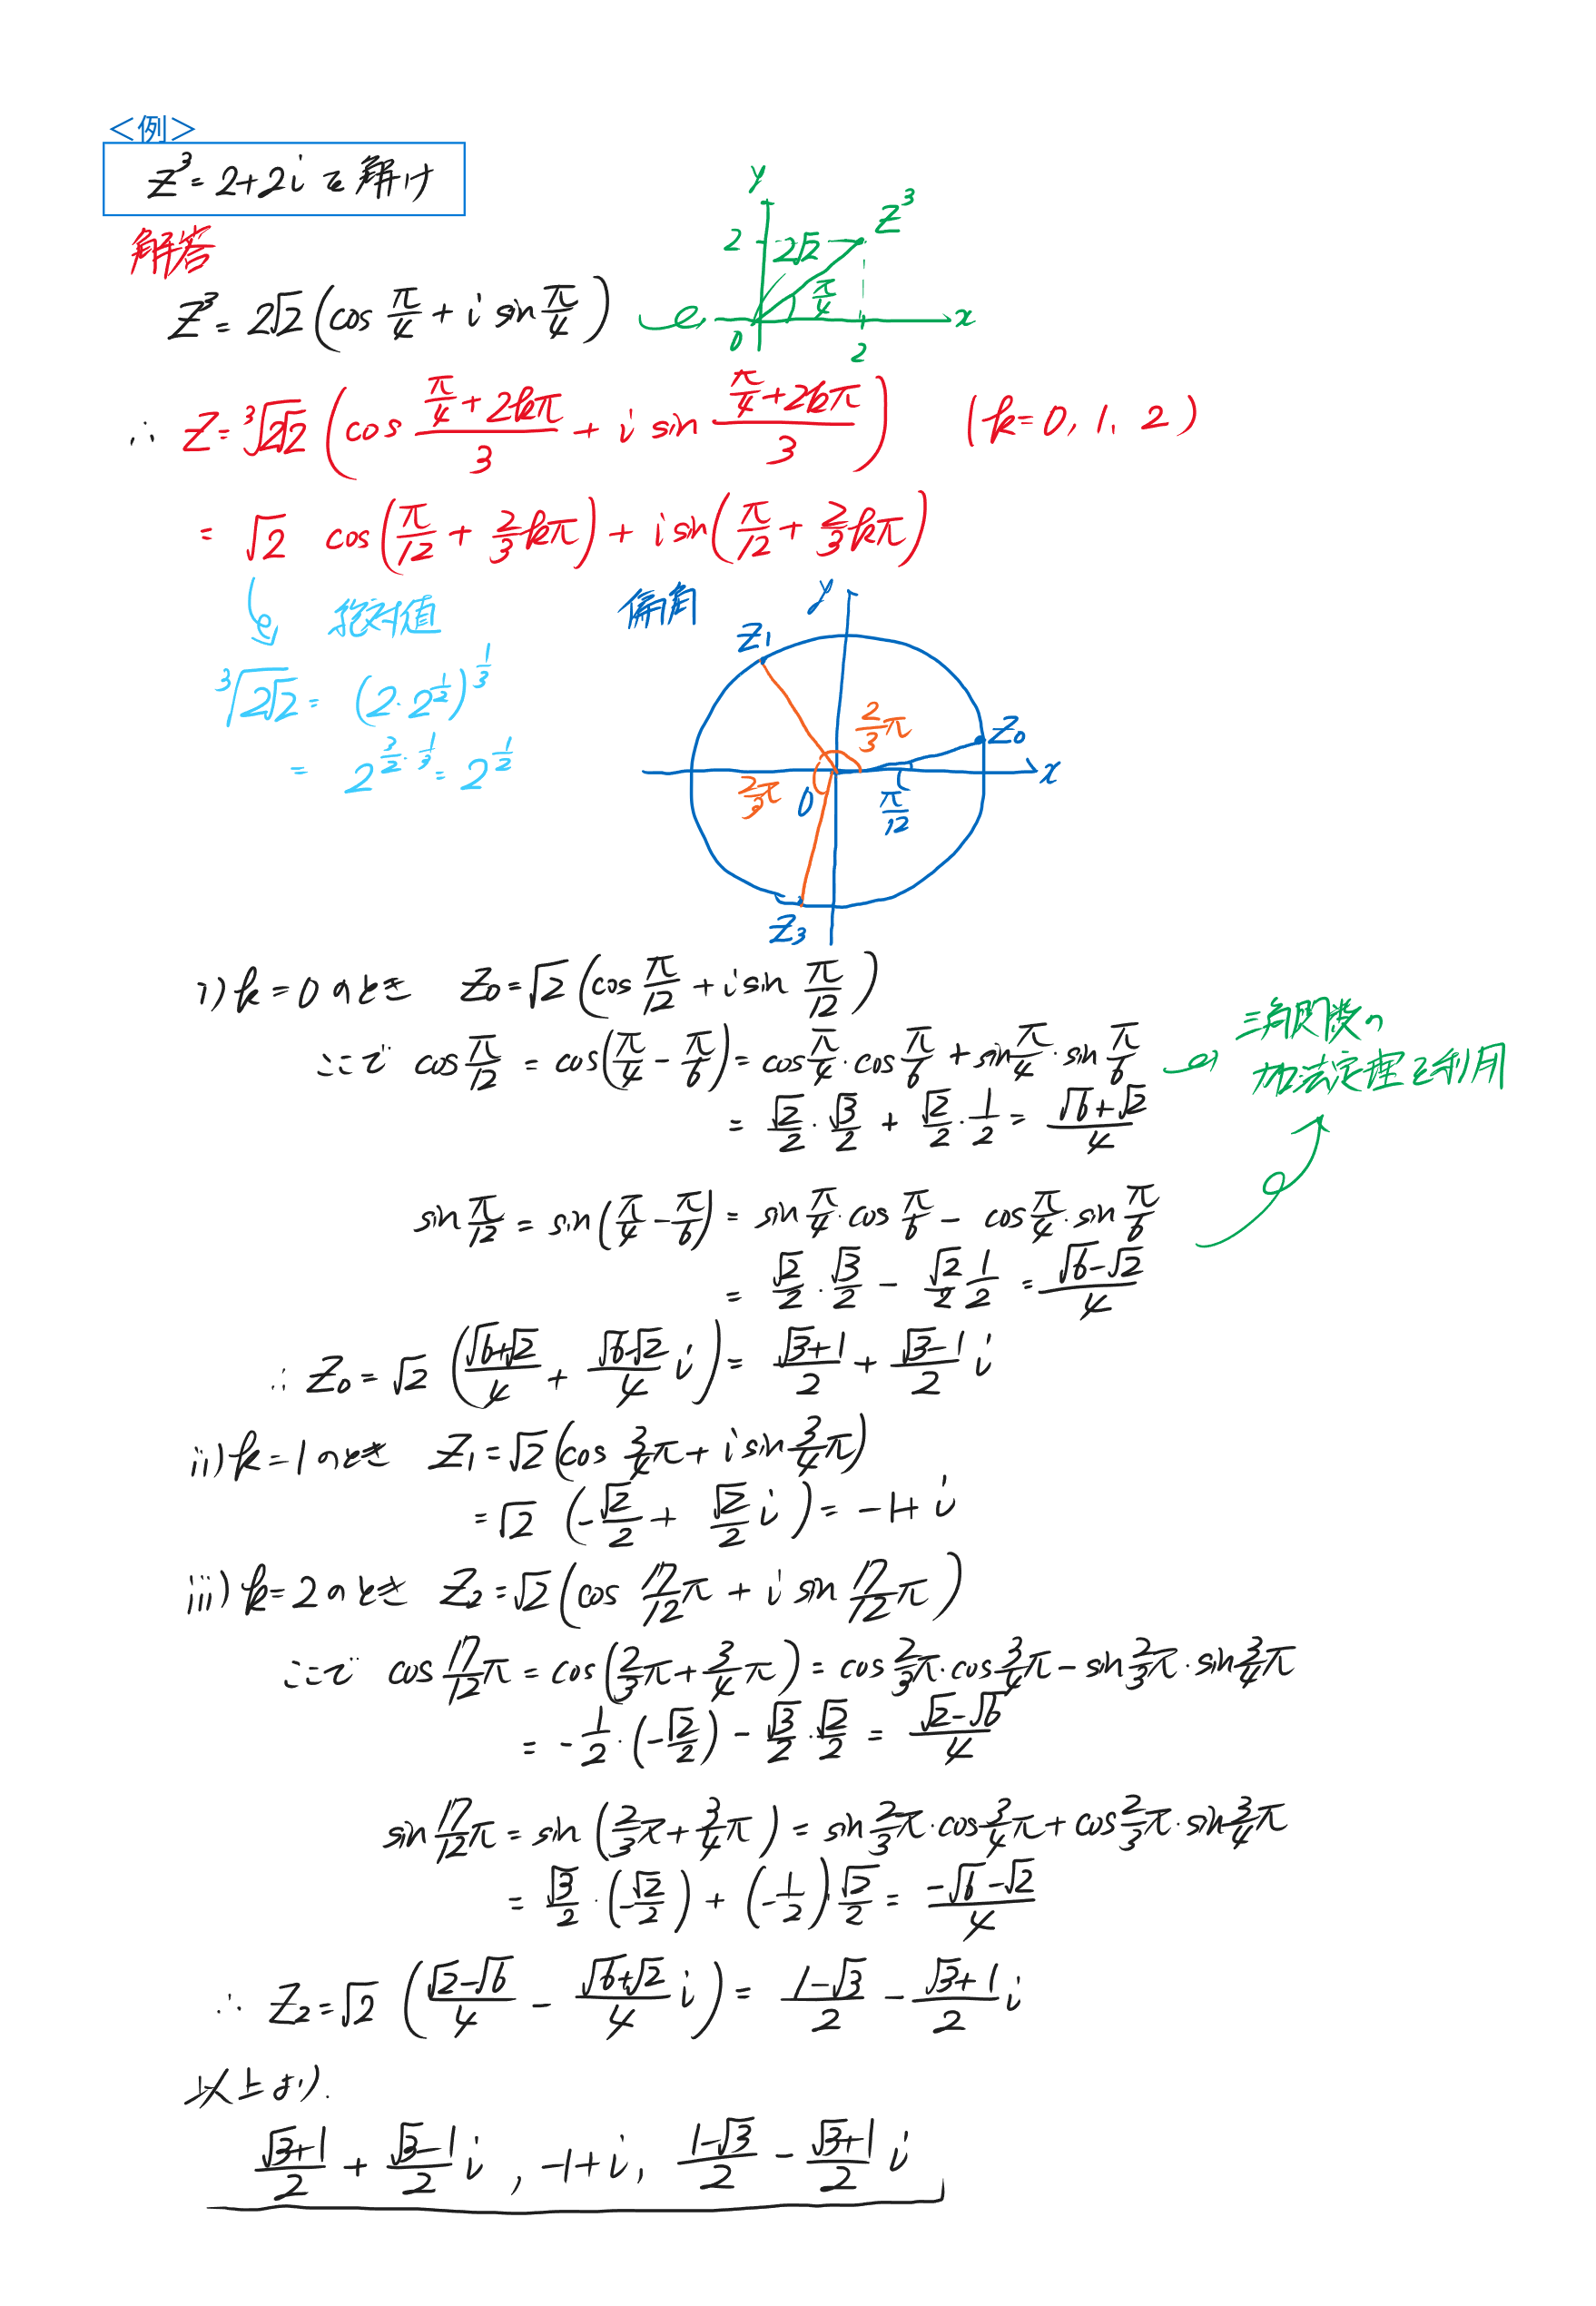 <例>
z³ = 2+2i を解け
解答
z³ = 2√2 (cos π/4 + i sin π/4)
y
z³
2
2√2
π/4
0
2
x
∴ z = ³√(2√2) (cos (π/4+2kπ)/3 + i sin (π/4+2kπ)/3) (k=0, 1, 2)
= √2 cos(π/12 + 2/3 kπ) + i sin(π/12 + 2/3 kπ)
絶対値
³√(2√2) = (2·2^(1/2))^(1/3)
= 2^(3/2·1/3) = 2^(1/2)
偏角
y
z₁
2/3 π
z₀
x
2/3 π
0
π/12
z₃
i) k=0 のとき z₀ = √2 (cos π/12 + i sin π/12)
ここで cos π/12 = cos(π/4 − π/6) = cos π/4 · cos π/6 + sin π/4 · sin π/6
= √2/2 · √3/2 + √2/2 · 1/2 = (√6+√2)/4
三角関数の
加法定理を利用
sin π/12 = sin(π/4 − π/6) = sin π/4 · cos π/6 − cos π/4 · sin π/6
= √2/2 · √3/2 − √2/2 1/2 = (√6−√2)/4
∴ z₀ = √2 ((√6+√2)/4 + (√6−√2)/4 i) = (√3+1)/2 + (√3−1)/2 i
ii) k=1 のとき z₁ = √2 (cos 3/4 π + i sin 3/4 π)
= √2 (−√2/2 + √2/2 i) = −1+i
iii) k=2 のとき z₂ = √2 (cos 17/12 π + i sin 17/12 π)
ここで cos 17/12 π = cos(2/3 π + 3/4 π) = cos 2/3 π · cos 3/4 π − sin 2/3 π · sin 3/4 π
= −1/2 · (−√2/2) − √3/2 · √2/2 = (√2−√6)/4
sin 17/12 π = sin (2/3 π + 3/4 π) = sin 2/3 π · cos 3/4 π + cos 2/3 π · sin 3/4 π
= √3/2 · (−√2/2) + (−1/2) √2/2 = (−√6−√2)/4
∴ z₂ = √2 ((√2−√6)/4 − (√6+√2)/4 i) = (1−√3)/2 − (√3+1)/2 i
以上より.
(√3+1)/2 + (√3−1)/2 i , −1+i, (1−√3)/2 − (√3+1)/2 i